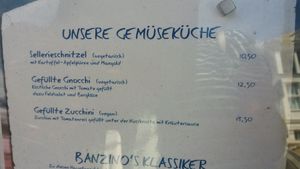 UNSERE GEMÜSEKÜCHE
Sellerieschnitzel (vegetarisch) 10,50
mit Kartoffel-Apfelpüree und Mangold
Gefüllte Gnocchi (vegetarisch) 12,50
Köstliche Gnocchi mit Tomate gefüllt
dazu Feldsalat und Bergkäse
Gefüllte Zucchini (vegan) 13,50
Zucchini mit Tomatenreis gefüllt unter der Kruste mit Kräutersauce
BANZINO'S KLASSIKER